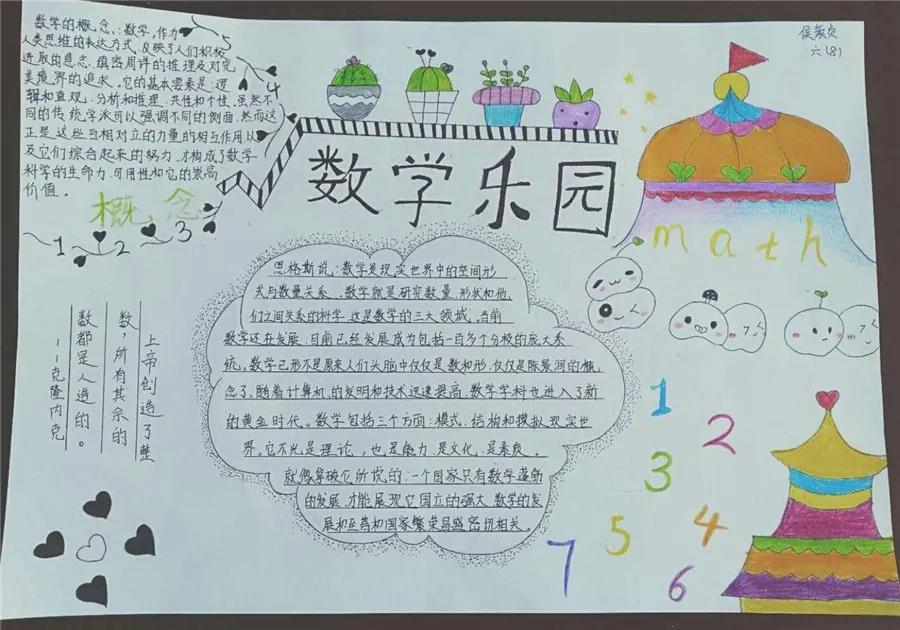 数学的概念:数学,作为
人类思维的表达方式,反映了人们积极
进取的意志、缜密周详的推理及对完
美境界的追求。它的基本要素是:逻
辑和直观、分析和推理、共性和个性。虽然不
同的传统学派可以强调不同的侧面,然而这
正是这些互相对立的力量的相互作用以
及它们综合起来的努力,才构成了数学
科学的生命力,可用性和它的崇高
价值。
概念
1 2 3 4 5
六(8)
数学乐园
math
恩格斯说:数学是现实世界中的空间形
式与数量关系。数学就是研究数量、形状和他
们之间关系的科学,这是数学的三大领域。当前
数学还在发展,目前已经发展成为包括一百多个分枝的庞大系
统。数学已形不是原来人们头脑中仅仅是数和形,仅仅是陈景润的概
念了,随着计算机的发明和技术迅速提高,数学学科也进入了新
的黄金时代。数学包括三个方面:模式、结构和模拟现实世
界。它不光是理论,也是能力,是文化,是素质。
就像拿破仑所说的:一个国家只有数学蓬勃
的发展,才能展现它国立的强大。数学的发
展和至善和国家繁荣昌盛密切相关。
上帝创造了整
数,所有其余的
数都是人造的。
——克隆内克
1
2
3
4
5
6
7